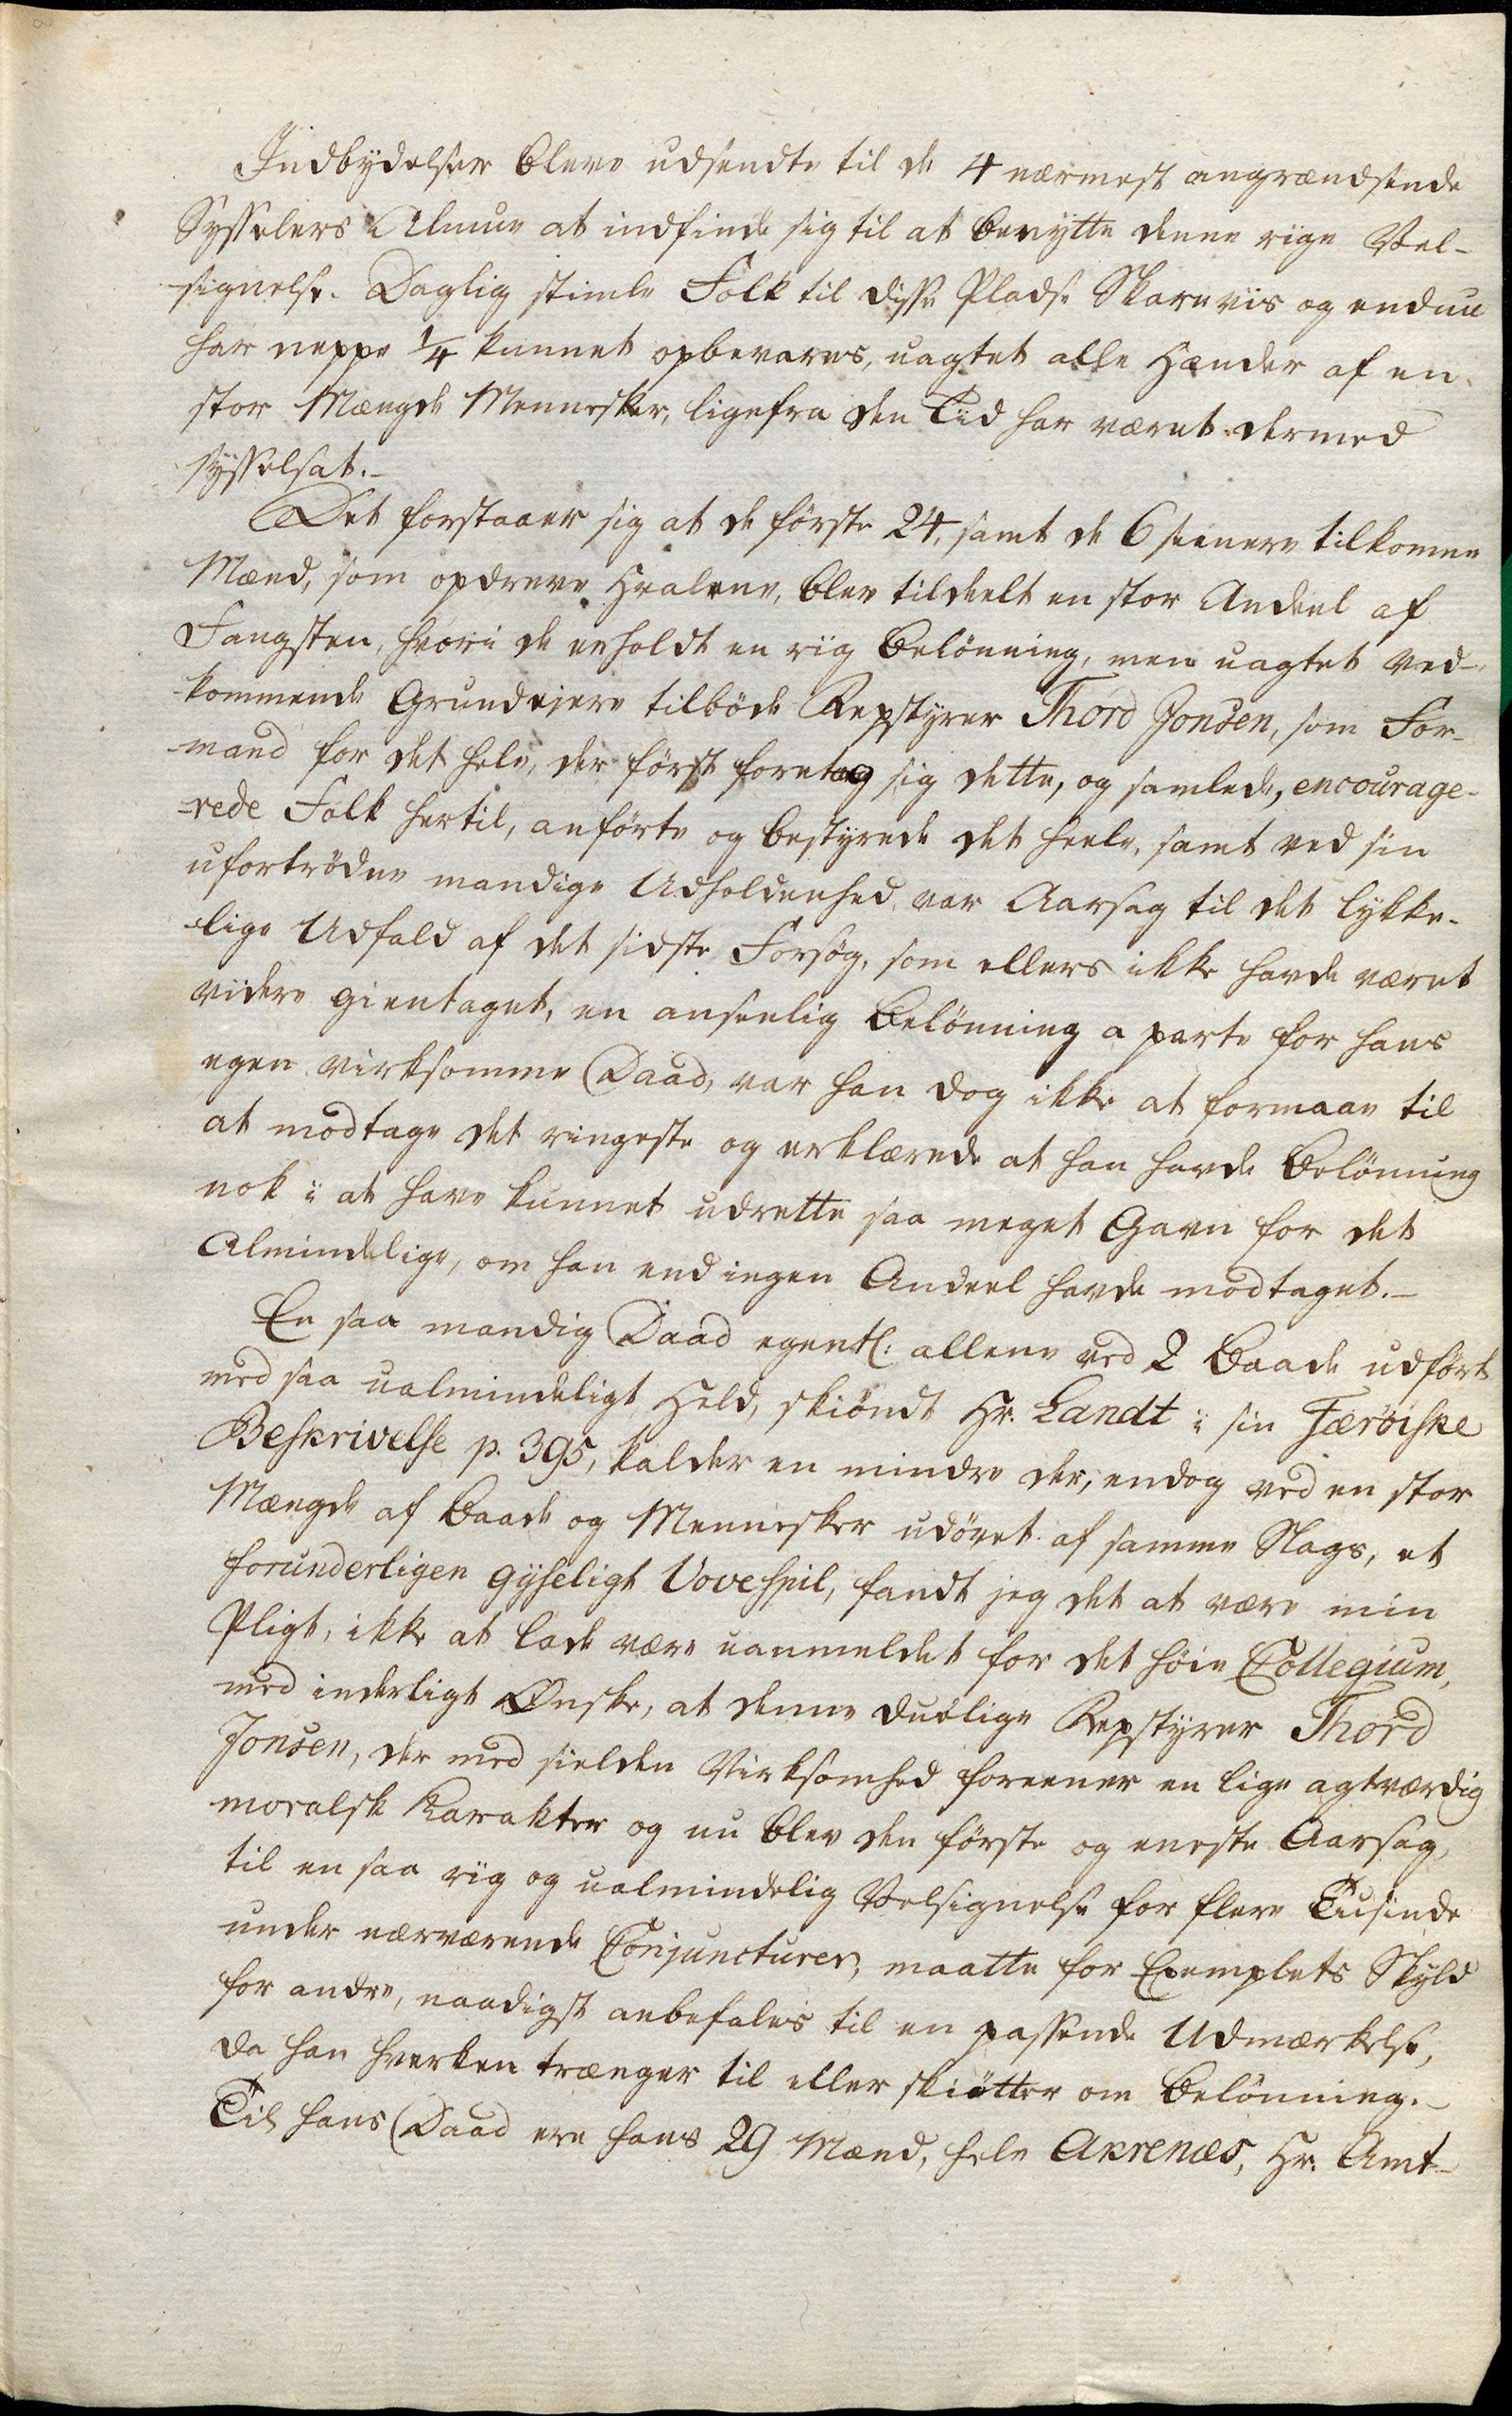 Indbydelser bleve udsendte til de 4 nærmest angrændsende
Sysselers Almue at indfinde sig til at benytte denne rige Vel-
signelse. Daglig stimle Folk til disse Pladse Skareviis og endnu
har neppe 1/4 kunnet opbevares, uagtet alle Hænder af en
stor Mængde Mennesker, ligefra den Tiid har været dermed
sysselsat.-
Det forstaaer sig at de förste 24, samt de 6 sienere tilkomne
Mænd, som opdreve Hvalene, blev tildeelt en stor Andeel af
Fangsten, hvori de erholdt en riig Belönning, men uagtet ved-
-kommende Grundejere tilböde Repstyrer Thord Jonsen, som For-
mand for det hele, der först foretog sig dette, og samlede, encourage-
-rede Folk hertil, anförte og bestyrede det heele, samt ved sin
ufortrödne mandige Udholdenhed var Aarsag til det lykke-
-lige Udfald af det sidste Forsög, som ellers ikke havde været
videre gientaget, en anseelig Belönning a parte for hans
egen virksomme Daad, var han dog ikke at formaae til
at modtage det ringeste og erklærede at han havde Belönning
nok i at have kunnet udrette saa meget Gavn for det
Almindelige, om han end ingen Andeel havde modtaget.-
En saa mandig Daad egentl: allene ved 2 Baade udfört
med saa ualmindeligt Held, skiöndt Hr. Landt i sin Færöiske
Beskrivelse p. 395, kalder en mindre der, endog ved en stor
Mængde af Baade og Mennesker udövet af samme Slags, et
forunderligen gyseligt Vovespil, fandt jeg det at være min
Pligt, ikke at lade være uanmeldet for det höie Collegium,
med inderligt Önske, at denne duelige Repstyrer Thord
Jonsen, der med sielden Virksomhed foreener en lige agtværdig
moralsk Karakter og nu blev den förste og eneste Aarsag,
til en saa riig og ualmindelig Velsignelse for flere Tusinde
under nærværende Conjuncturer, maatte for Exemplets Skyld
for andre, naadigst anbefales til en passende Udmærkelse,
da han hverken trænger til eller skiötter om Belönning.-
Til hans Daad ere hans 29 Mænd, hele Akrenæs, Hr. Amt-